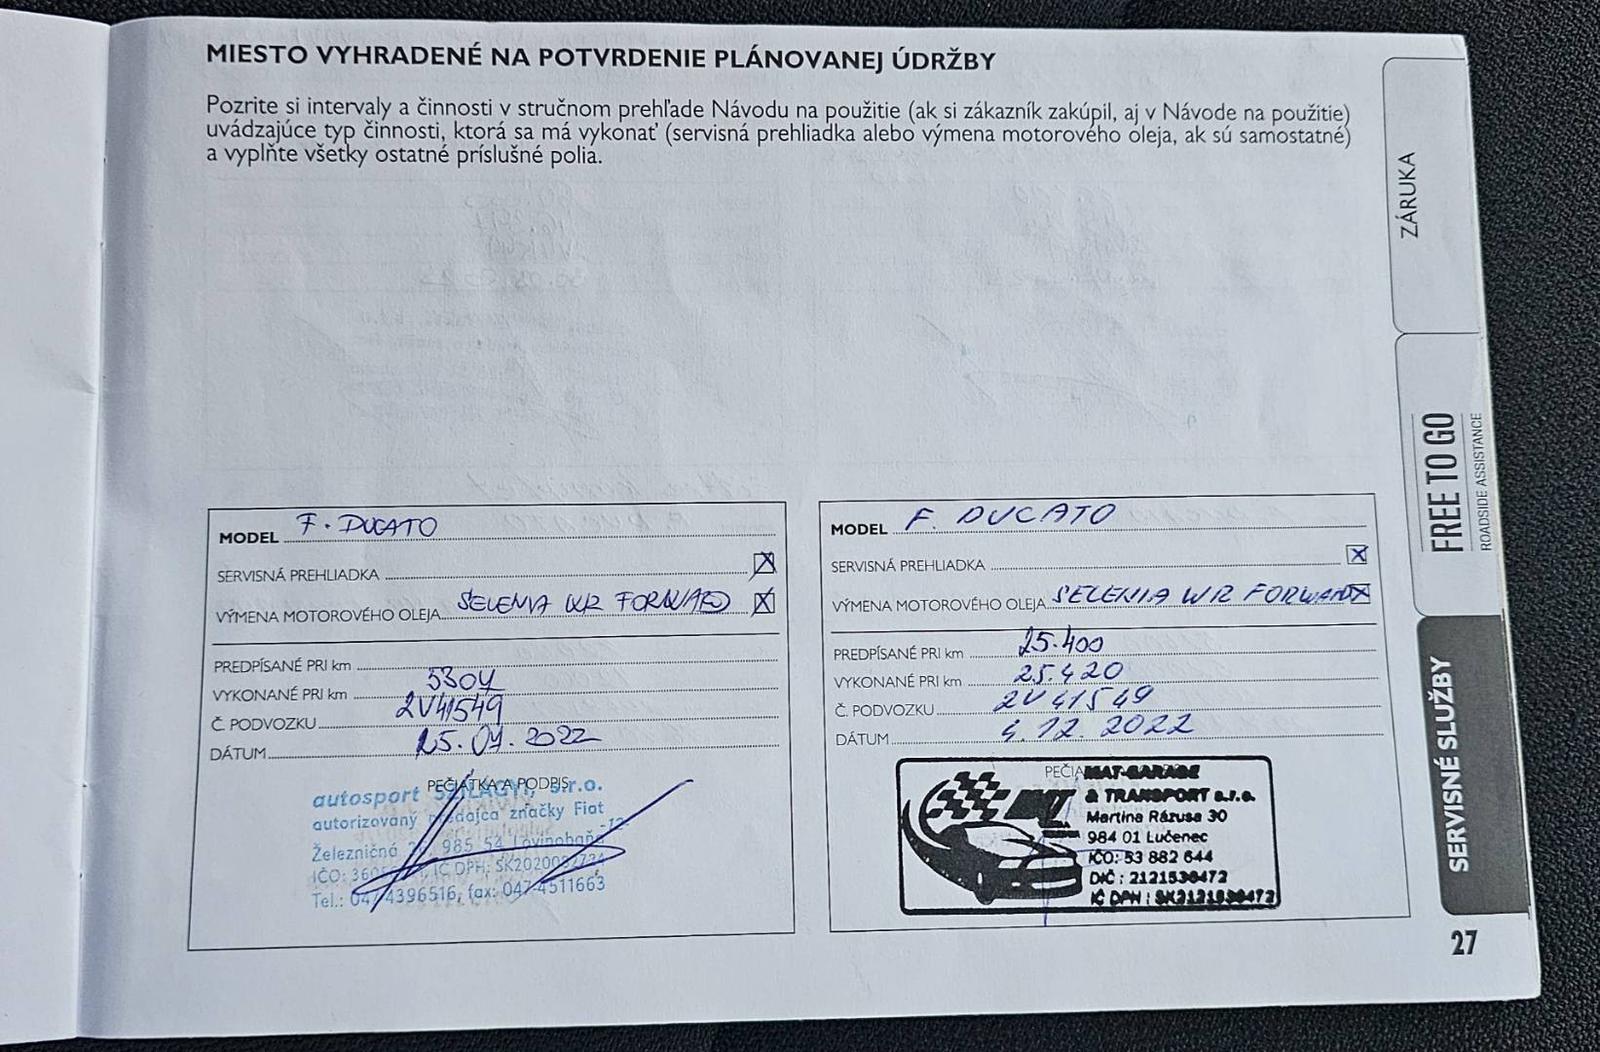 MIESTO VYHRADENÉ NA POTVRDENIE PLÁNOVANEJ ÚDRŽBY
Pozrite si intervaly a činnosti v stručnom prehľade Návodu na použitie (ak si zákazník zakúpil, aj v Návode na použitie)
uvádzajúce typ činnosti, ktorá sa má vykonať (servisná prehliadka alebo výmena motorového oleja, ak sú samostatné)
a vyplňte všetky ostatné príslušné polia.
MODEL F. DUCATO
SERVISNÁ PREHLIADKA X
VÝMENA MOTOROVÉHO OLEJA SELENIA WR FORWARD X
PREDPÍSANÉ PRI km
VYKONANÉ PRI km 5304
Č. PODVOZKU 2V41549
DÁTUM 25.04.2022
PEČIATKA A PODPIS
autosport SZILAGYI, s.r.o.
autorizovaný predajca značky Fiat
Železničná 985 54 Lovinobaňa
IČO: IČ DPH:
Tel.: 047/4396516, fax: 047-4511663
MODEL F. DUCATO
SERVISNÁ PREHLIADKA X
VÝMENA MOTOROVÉHO OLEJA SELENIA WR FORWARD X
PREDPÍSANÉ PRI km 25.400
VYKONANÉ PRI km 25.420
Č. PODVOZKU 2V41549
DÁTUM 4.12.2022
MAT-GARAGE
& TRANSPORT s.r.o.
Martina Rázusa 30
984 01 Lučenec
IČO: 53 882 644
DIČ : 2121536472
IČ DPH : SK2121536472
ZÁRUKA
FREE TO GO
ROADSIDE ASSISTANCE
SERVISNÉ SLUŽBY
27